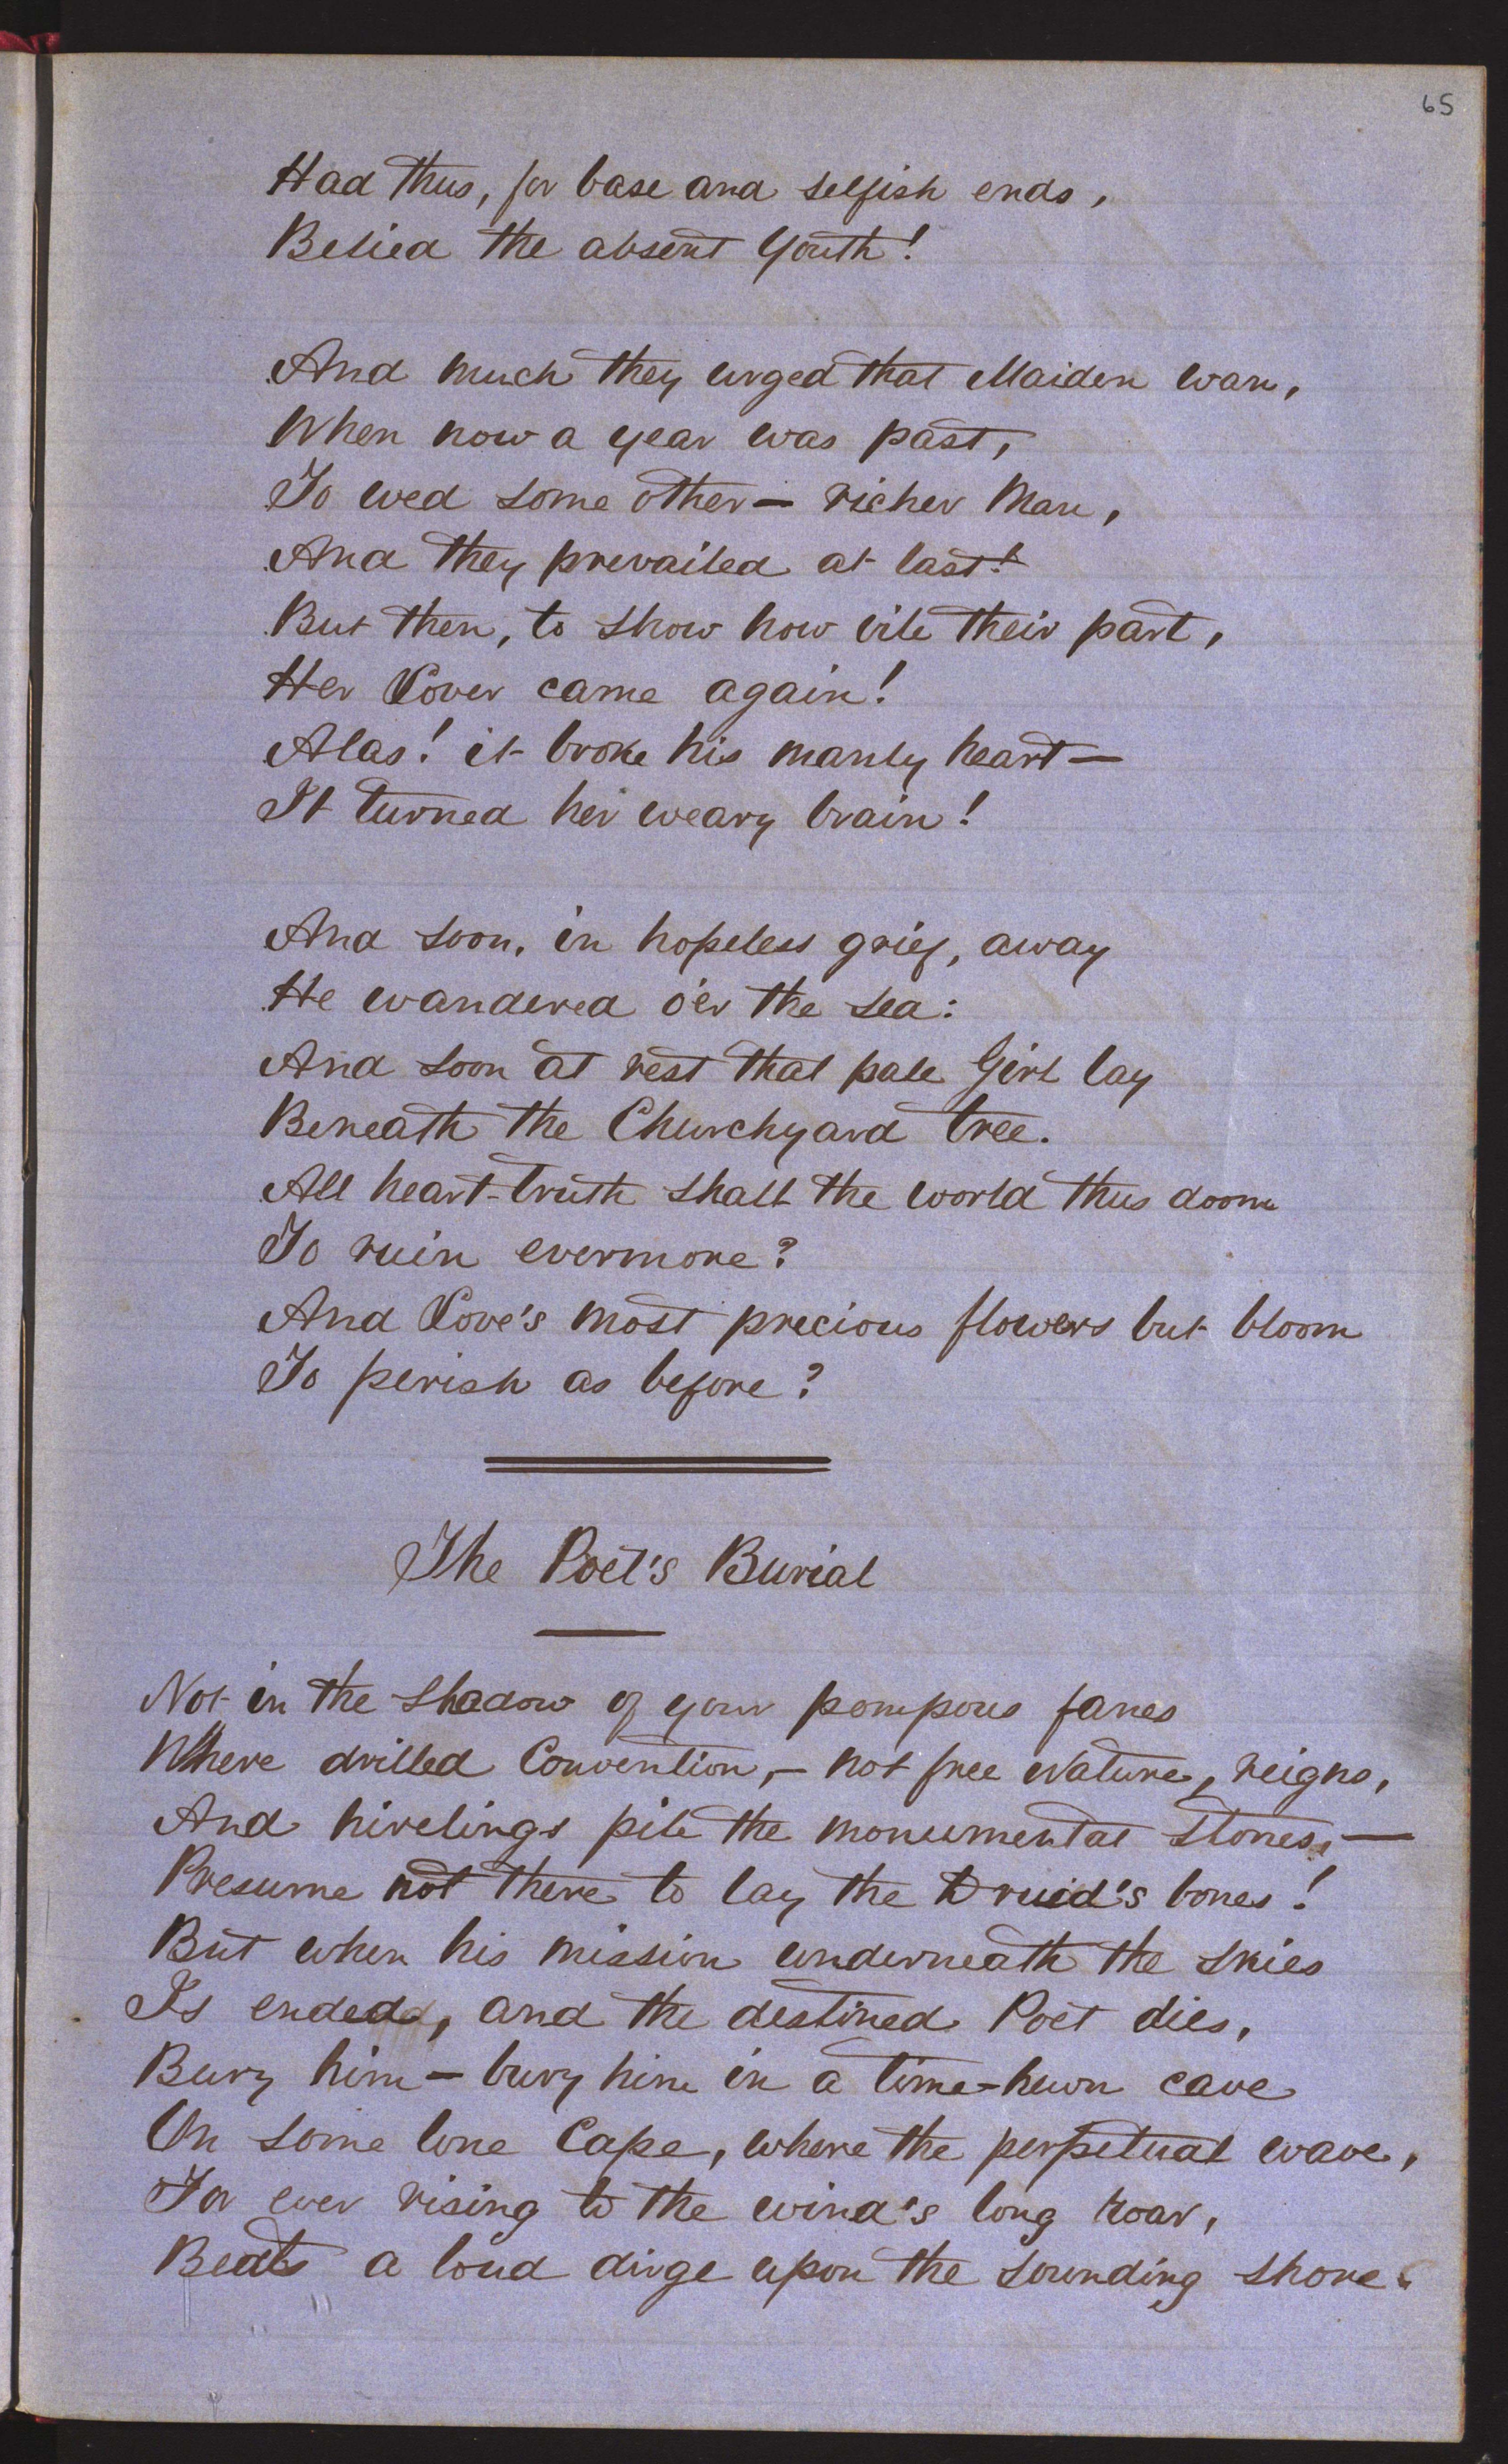 65
Had thus, for base and selfish ends,
Belied the absent Youth!
And much they urged that Maiden wan,
When now a year was past,
To wed some other — richer Man,
And they prevailed at last!
But then, to show how vile their part,
Her Lover came again!
Alas! it broke his manly heart —
It turned her weary brain!
And soon, in hopeless grief, away
He wandered o'er the sea:
And soon at rest that pale Girl lay
Beneath the Churchyard tree.
All heart-truth shall the world thus doom
To ruin evermore?
And Love's most precious flowers but bloom
To perish as before?
The Poet's Burial
Not in the shadow of your pompous fanes
Where drilled Convention, — not free Nature, reigns,
And hirelings pile the monumental stones, —
Presume not there to lay the Druid's bones!
But when his mission underneath the skies
Is ended, and the destined Poet dies,
Bury him — bury him in a time-hewn cave
On some lone Cape, where the perpetual wave,
For ever rising to the wind's long roar,
Beats a loud dirge upon the sounding shore.